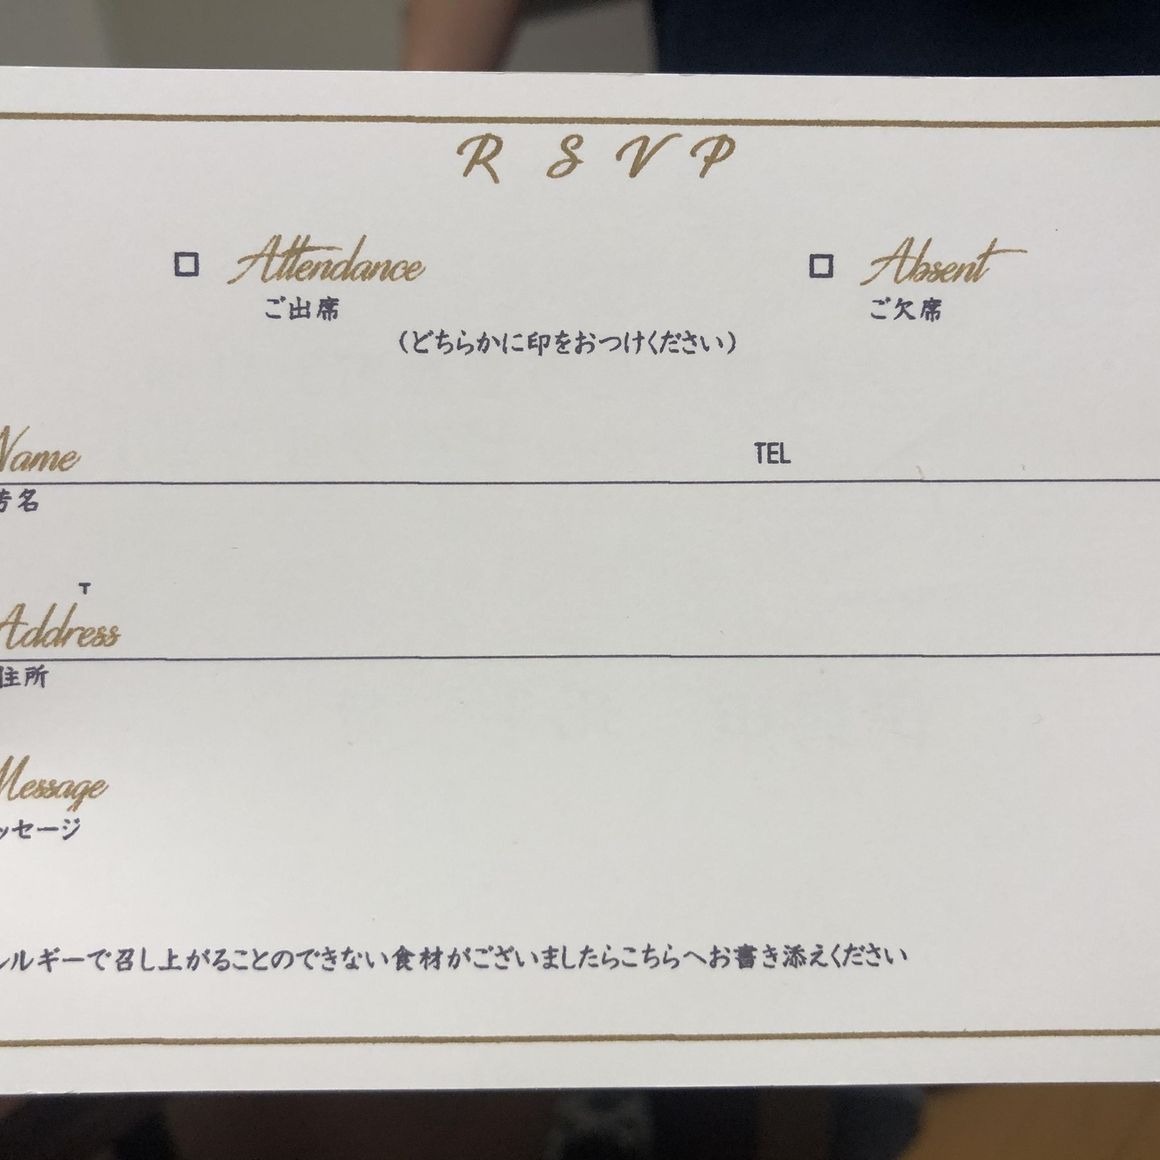 RSVP
Attendance
Absent
ご出席
ご欠席
(どちらかに印をおつけください)
Name
TEL
芳名
〒
Address
住所
Message
ッセージ
ルギーで召し上がることのできない食材がございましたらこちらへお書き添えください